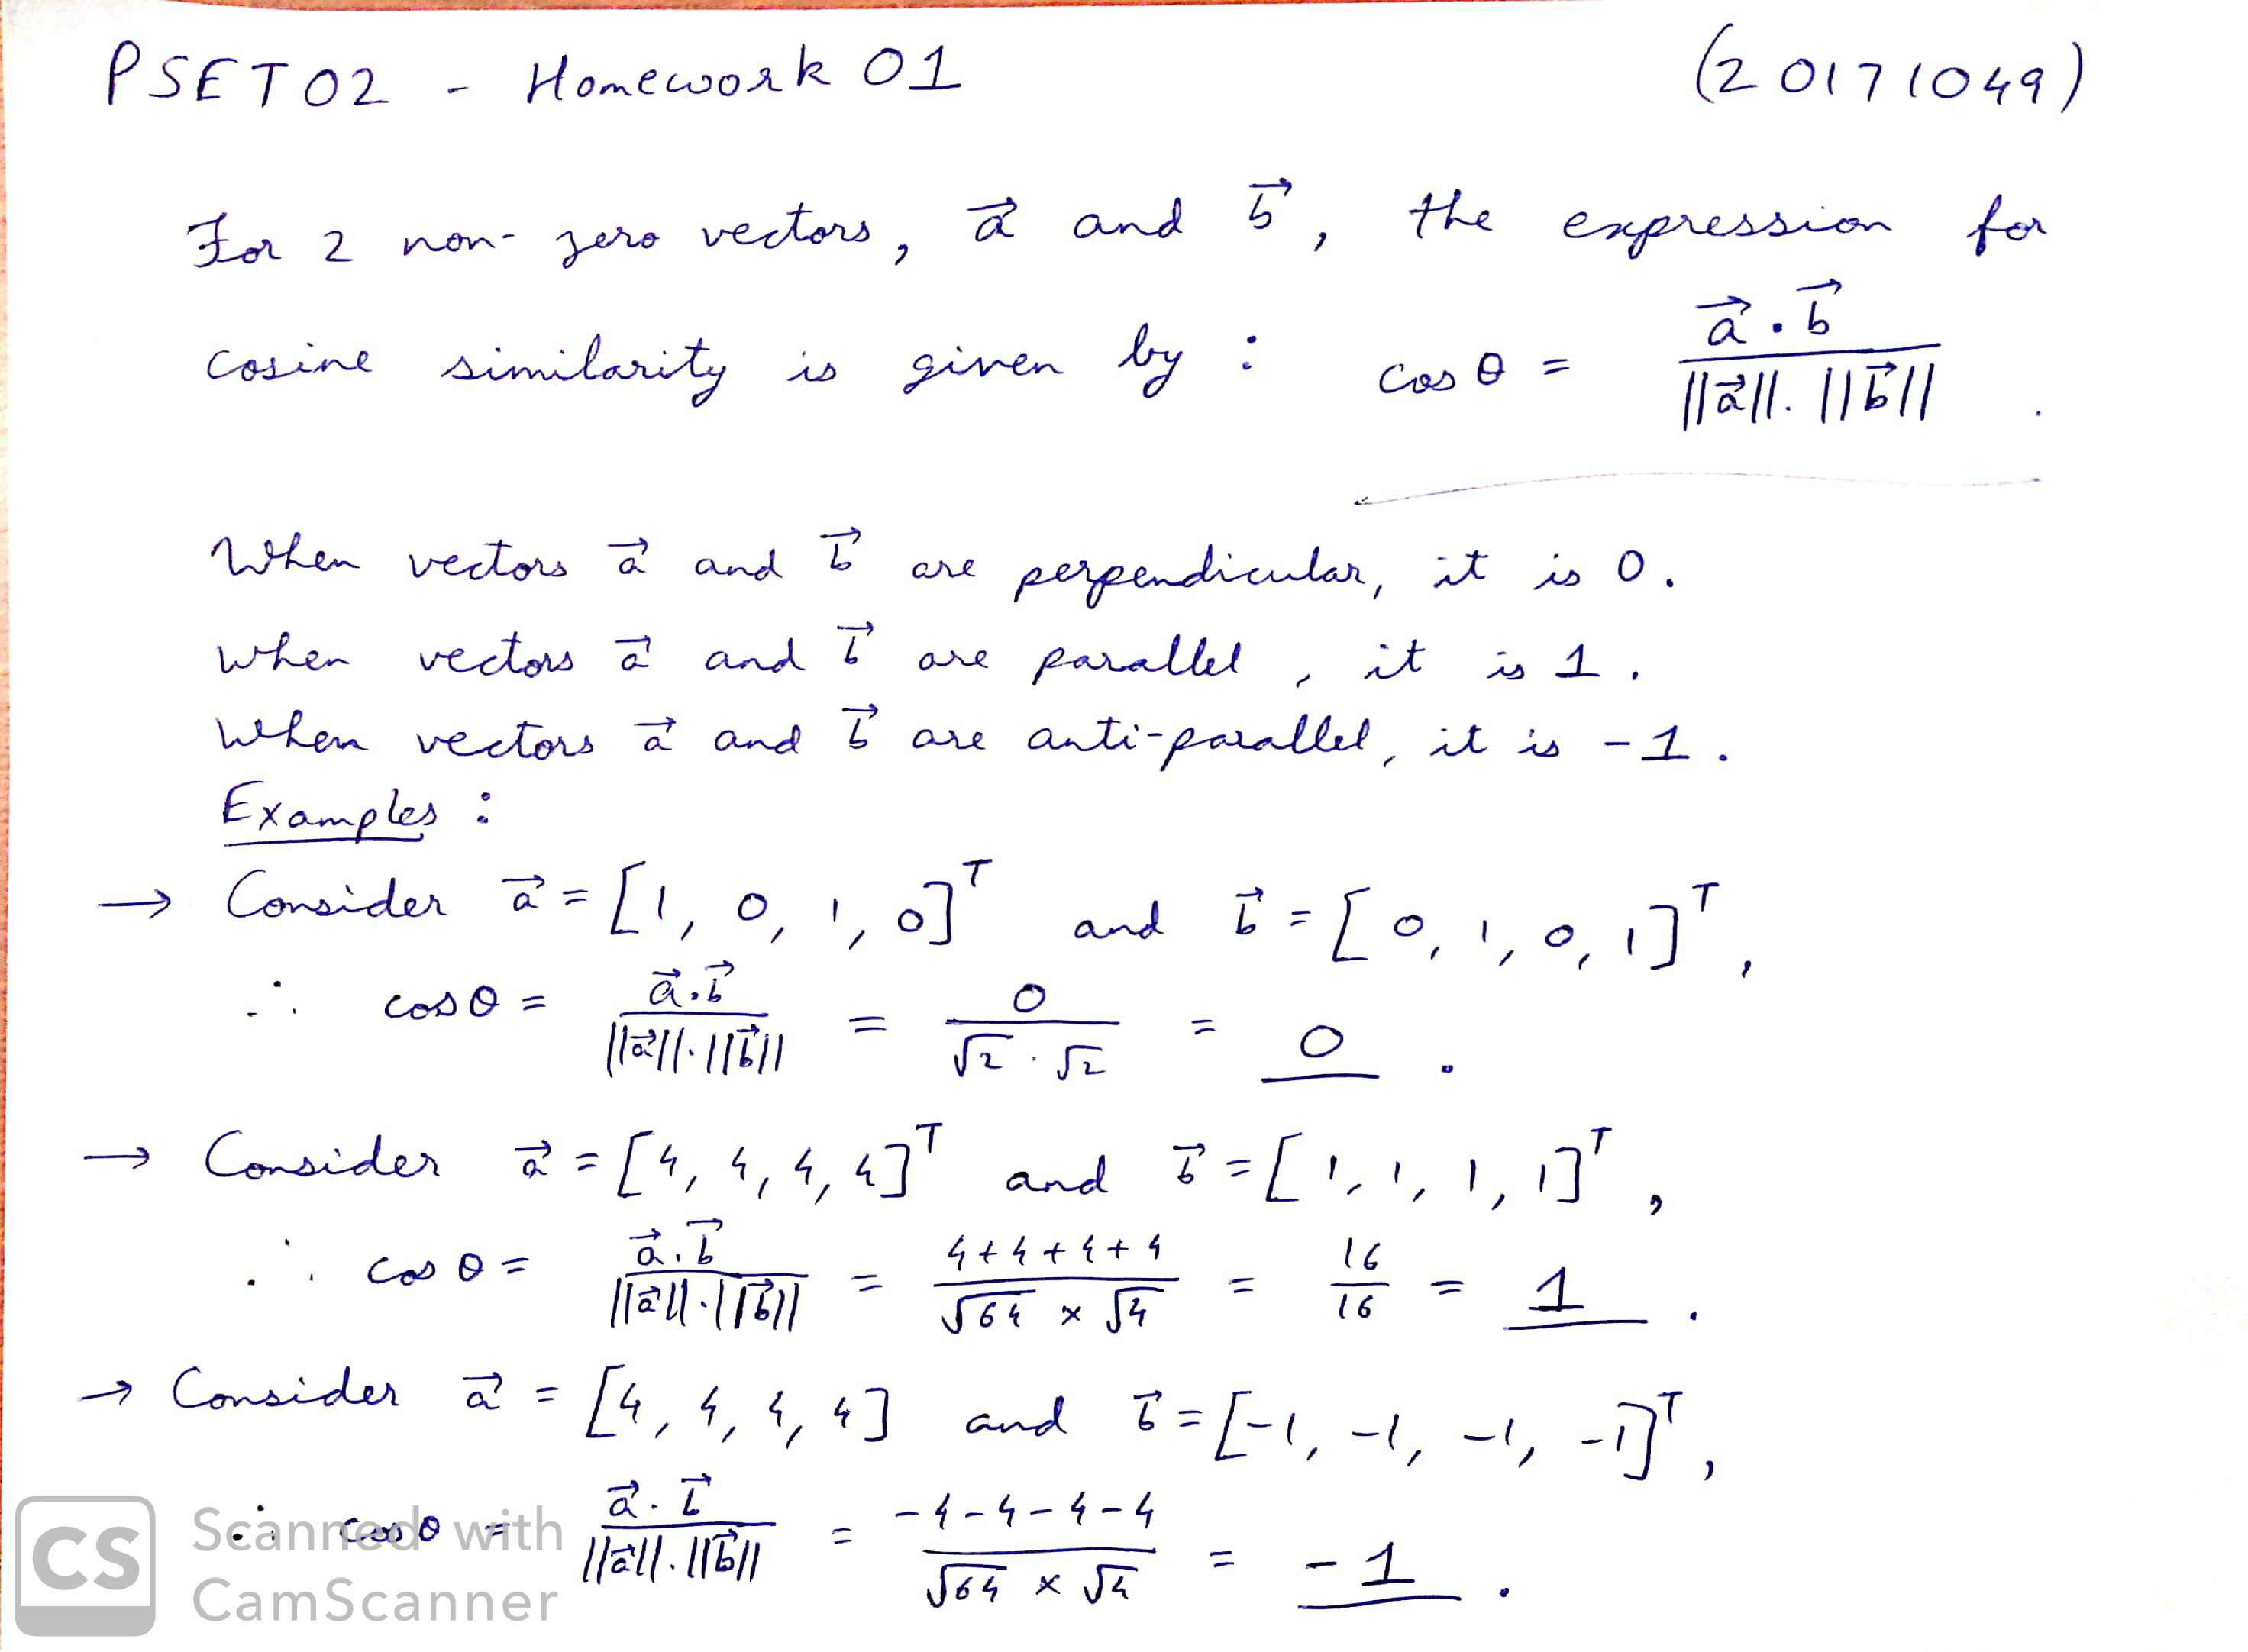 PSET02 - Homework 01 (20171049)
For 2 non-zero vectors, a⃗ and b⃗, the expression for
cosine similarity is given by : cos θ = a⃗ . b⃗ / ||a⃗||. ||b⃗|| .
When vectors a⃗ and b⃗ are perpendicular, it is 0.
When vectors a⃗ and b⃗ are parallel, it is 1.
When vectors a⃗ and b⃗ are anti-parallel, it is -1.
Examples :
→ Consider a⃗ = [1, 0, 1, 0]ᵀ and b⃗ = [0, 1, 0, 1]ᵀ,
∴ cos θ = a⃗.b⃗ / ||a⃗||.||b⃗|| = 0 / √2 . √2 = 0 .
→ Consider a⃗ = [4, 4, 4, 4]ᵀ and b⃗ = [1, 1, 1, 1]ᵀ,
∴ cos θ = a⃗.b⃗ / ||a⃗||.||b⃗|| = 4+4+4+4 / √64 x √4 = 16 / 16 = 1 .
→ Consider a⃗ = [4, 4, 4, 4] and b⃗ = [-1, -1, -1, -1]ᵀ,
∴ cos θ = a⃗.b⃗ / ||a⃗||.||b⃗|| = -4-4-4-4 / √64 x √4 = -1 .
CS Scanned with
CamScanner